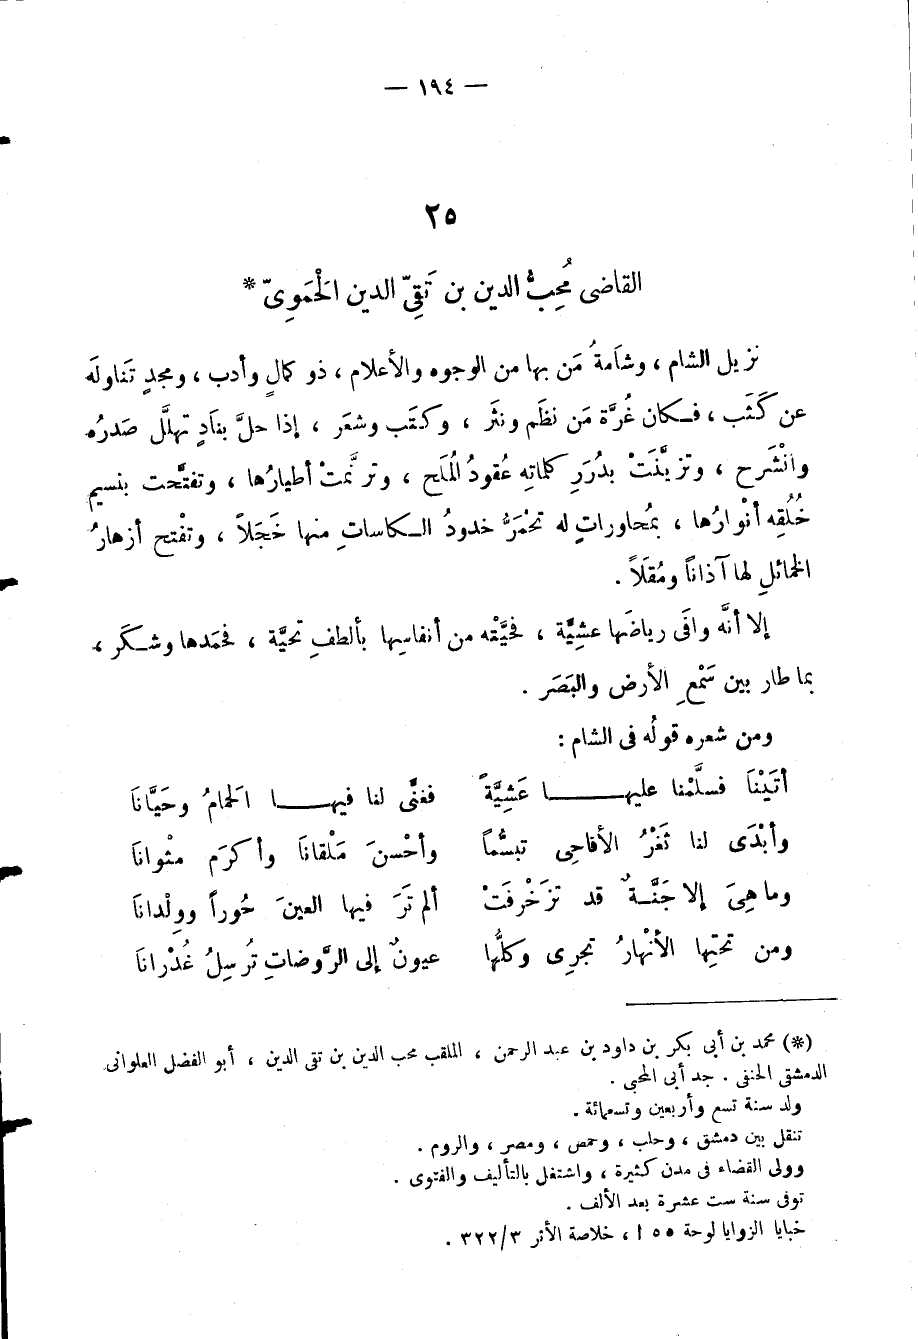 — ١٩٤ —
٢٥
القاضى مُحِبُّ الدين بن تَقِىّ الدين الْحَمَوِىّ *
نزيل الشام ، وشَامةُ مَن بها من الوجوه والأعلام ، ذو كمالٍ وأدب ، ومجدٍ تَناولَه
عن كَثَب ، فـكان غُرَّة مَن نظَم ونثَر ، وكتَب وشعَر ، إذا حلَّ بنَادٍ تهلَّل صَدرُه
وانْشَرح ، وتزيَّنَتْ بدُرَرِ كلماتِه عُقودُ المُلَح ، وترنَّمتْ أطيارُها ، وتفتَّحت بنسيمِ
خُلُقِه أنْوارُها ، بمُحاوراتٍ له تَحْمَرُّ خدودُ الـكاساتِ منها خَجَلاً ، وتفْتح أزهارُ
الخمائلِ لها آذاناً ومُقَلاً .
إلا أنَّه وافَى رياضَها عشِيَّة ، فحَيَّتْه من أنفاسِها بألطفِ تحيَّة ، فحمَدها وشـكَر ،
بما طار بين سَمْعِ الأرض والبَصَر .
ومن شعره قولُه فى الشام :
أتَيْنَا فسلَّمْنا عليهـــــا عَشِيَّةً فغنَّى لنا فيهـــا الْحَمامُ وحَيَّانَا
وأبْدَى لنا ثَغْرُ الأقاحِى تبسُّماً وأحْسنَ مَلْقانَا وأكرَم مثْوانَا
وما هِىَ إلا جَنَّـةٌ قد تزَخْرفَتْ ألم ترَ فيها العينَ حُوراً ووِلْدانَا
ومن تحتِها الأنْهارُ تجرِى وكلُّها عيونٌ إلى الرَّوضاتِ تُرسِلُ غُدْرانَا
(*) محمد بن أبى بكر بن داود بن عبد الرحمن ، الملقب محب الدين بن تقى الدين ، أبو الفضل العلوانى
الدمشقى الحنفى . جد أبى المحبى .
ولد سنة تسع وأربعين وتسعمائة .
تنقل بين دمشق ، وحلب ، وحمص ، ومصر ، والروم .
وولى القضاء فى مدن كثيرة ، واشتغل بالتأليف والفتوى .
توفى سنة ست عشرة بعد الألف .
خبايا الزوايا لوحة ٥٥ ا ، خلاصة الأثر ٣٢٢/٣ .